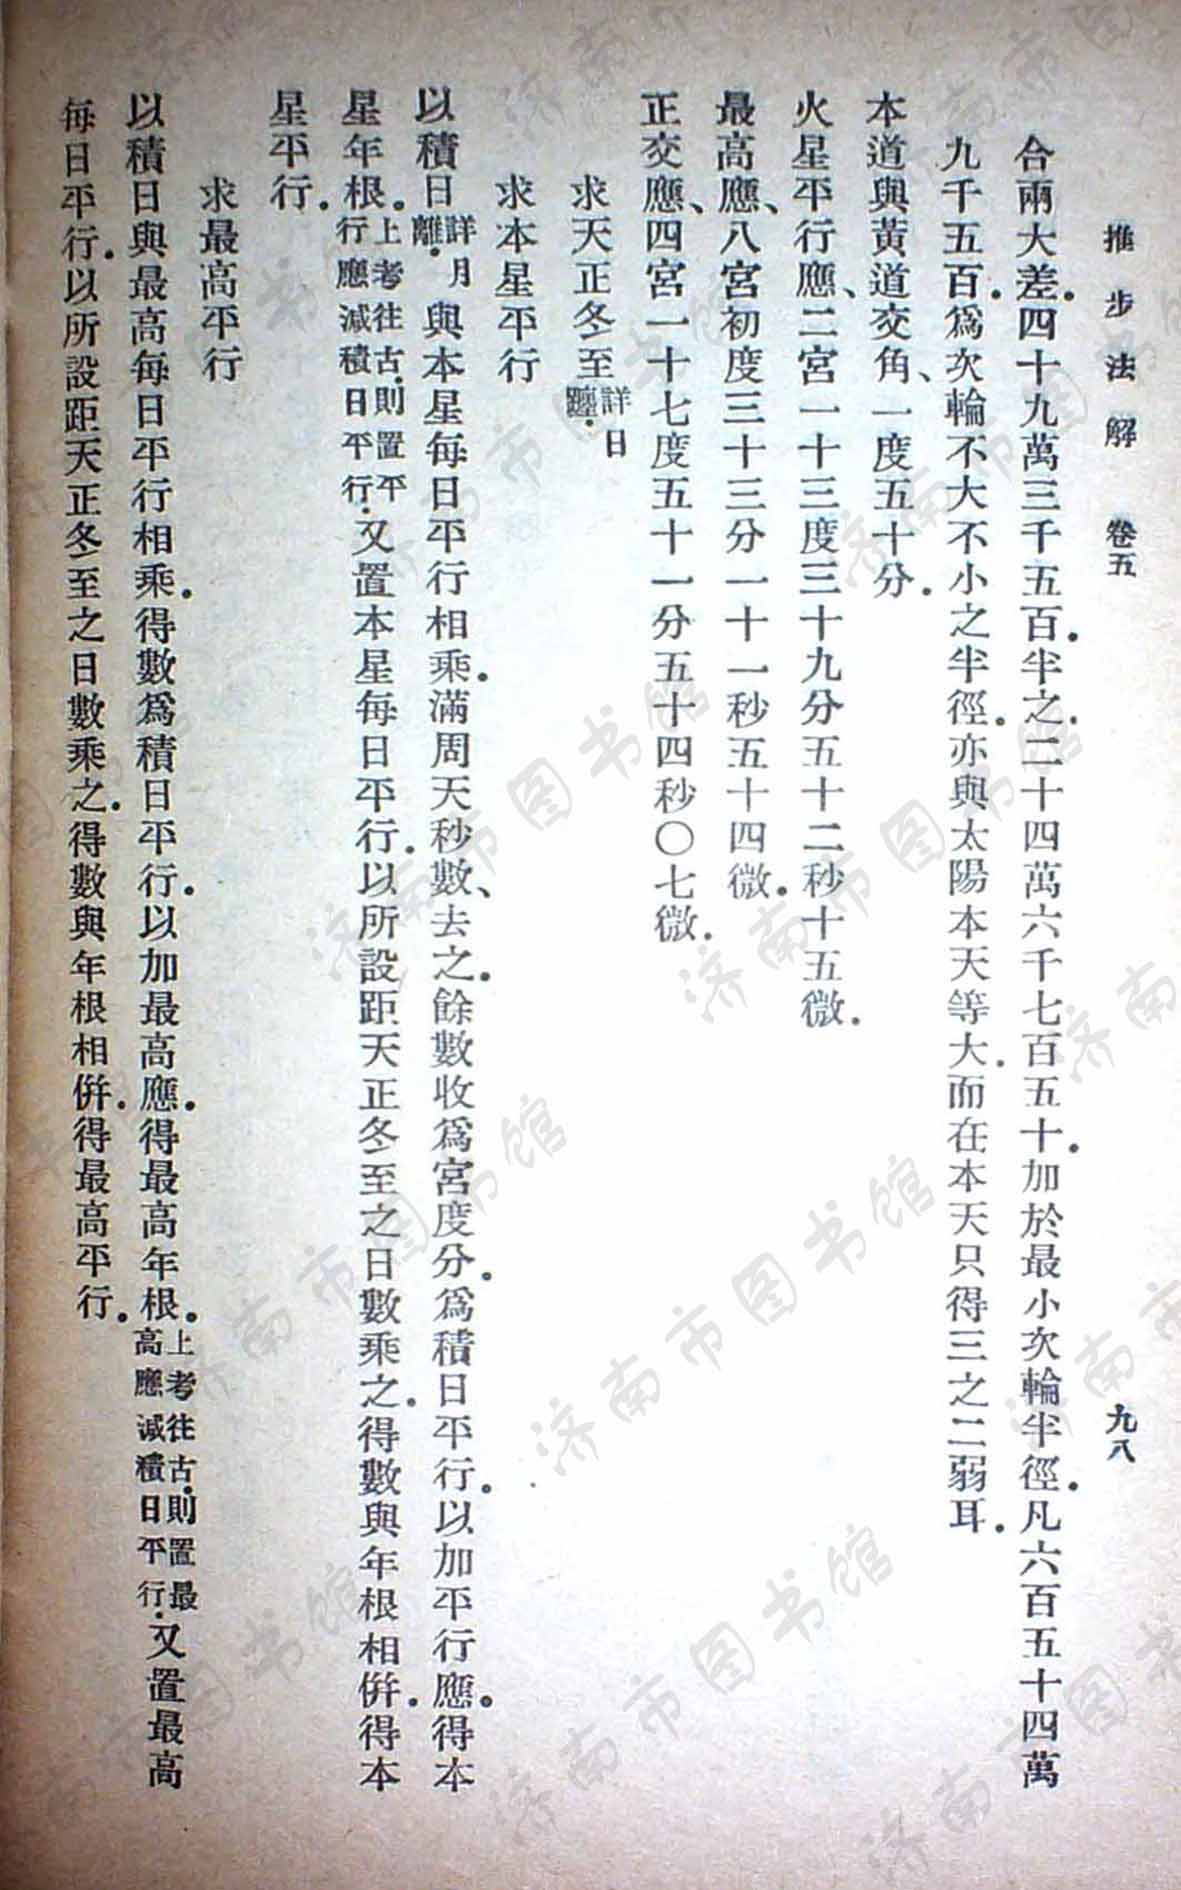 推步法解 卷五 九八
合兩大差．四十九萬三千五百．半之．二十四萬六千七百五十．加於最小次輪半徑．凡六百五十四萬
九千五百．爲次輪不大不小之半徑．亦與太陽本天等大．而在本天只得三之二弱耳．
本道與黃道交角、一度五十分．
火星平行應、二宮一十三度三十九分五十二秒十五微．
最高應、八宮初度三十三分一十一秒五十四微．
正交應、四宮一十七度五十一分五十四秒〇七微．
求天正冬至詳日躔．
求本星平行
以積日詳月離．與本星每日平行相乘．滿周天秒數、去之．餘數收爲宮度分．爲積日平行．以加平行應．得本
星年根．上考往古．則置平行應減積日平行．又置本星每日平行．以所設距天正冬至之日數乘之．得數與年根相併．得本
星平行．
求最高平行
以積日與最高每日平行相乘．得數爲積日平行．以加最高應．得最高年根．上考往古．則置最高應減積日平行．又置最高
每日平行．以所設距天正冬至之日數乘之．得數與年根相併．得最高平行．
济南市图书馆